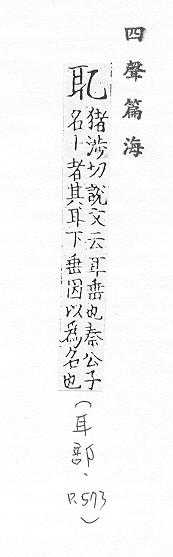 四聲篇海
耴
猪涉切說文云耳垂也秦公子
名卜者其耳下垂因以爲名也
(耳部、P.573)